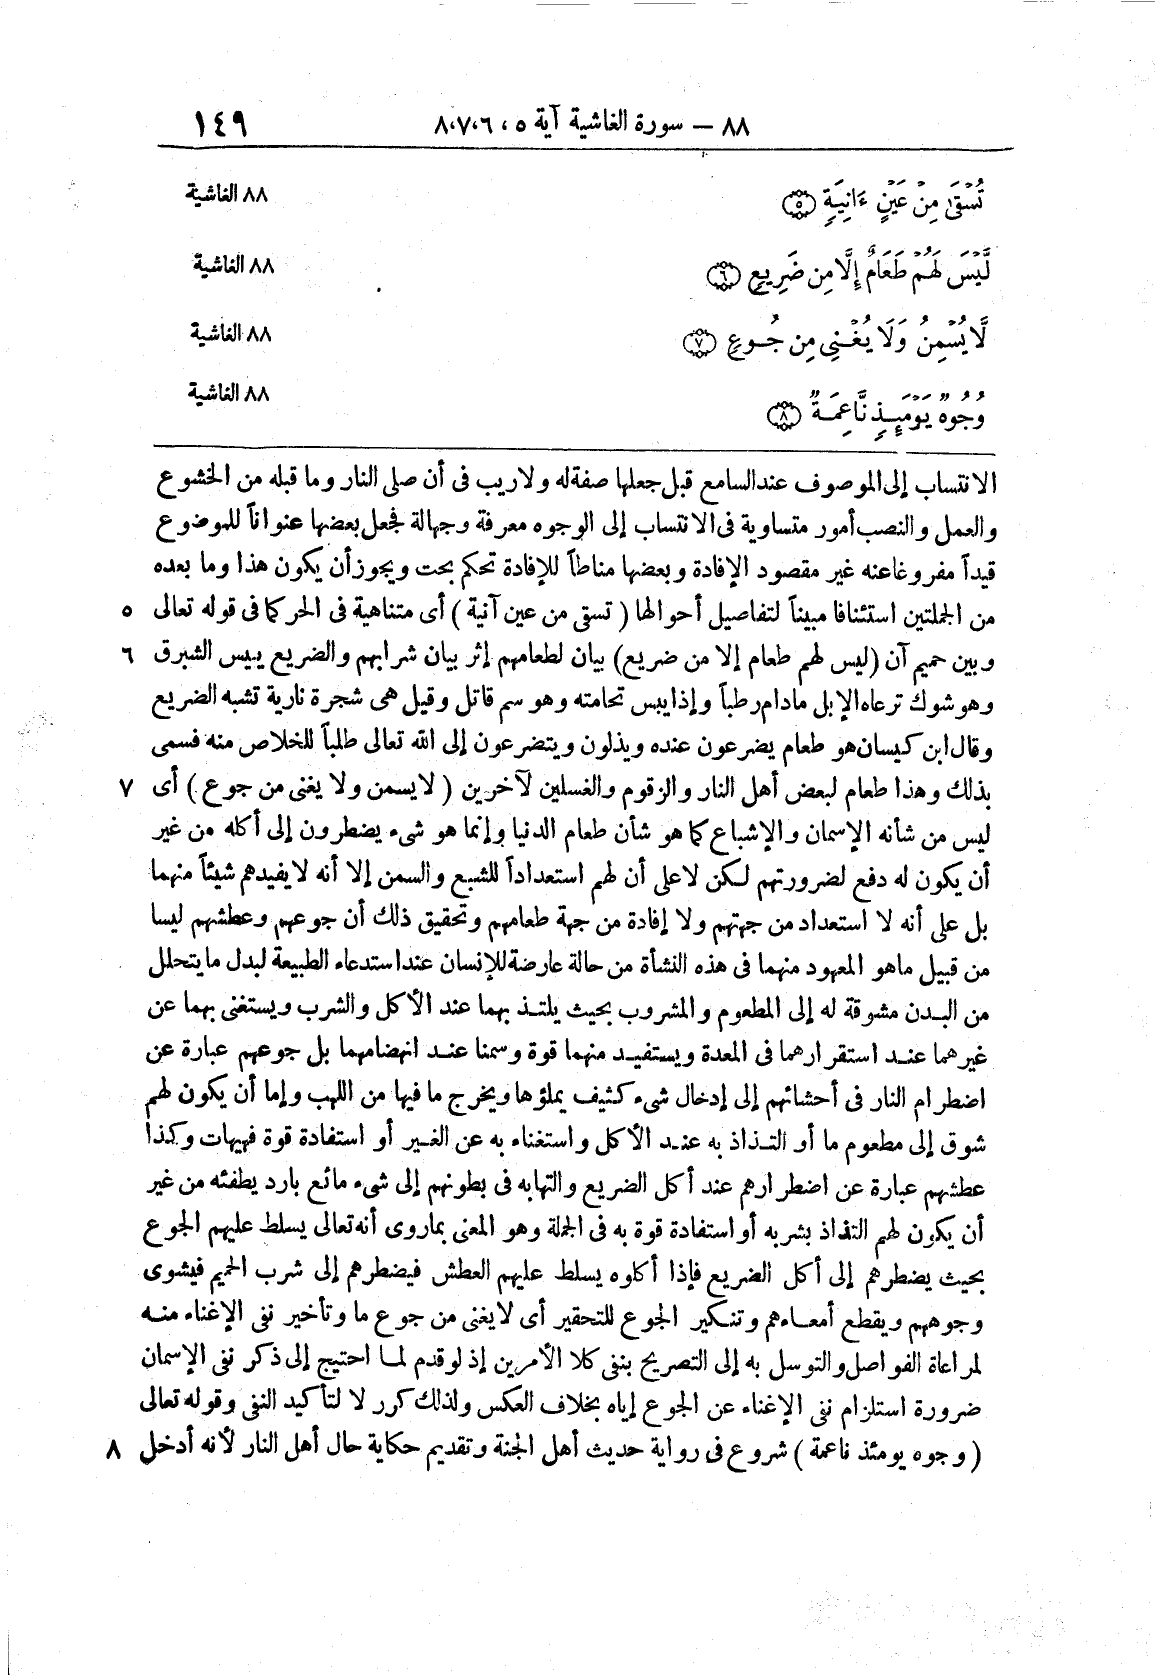 ٨٨ — سورة الغاشية آية ٥ ، ٨،٧،٦ ١٤٩
تُسْقَىٰ مِنْ عَيْنٍ ءَانِيَةٍ ﴿٥﴾ ٨٨ الغاشية
لَّيْسَ لَهُمْ طَعَامٌ إِلَّا مِن ضَرِيعٍ ﴿٦﴾ ٨٨ الغاشية
لَّا يُسْمِنُ وَلَا يُغْنِى مِن جُوعٍ ﴿٧﴾ ٨٨ الغاشية
وُجُوهٌ يَوْمَئِذٍ نَّاعِمَةٌ ﴿٨﴾ ٨٨ الغاشية
الانتساب إلى الموصوف عند السامع قبل جعلها صفة له ولا ريب فى أن صلى النار وما قبله من الخشوع
والعمل والنصب أمور متساوية فى الانتساب إلى الوجوه معرفة وجهالة فجعل بعضها عنواناً للموضوع
قيداً مفروغا عنه غير مقصود الإفادة وبعضها مناطاً للإفادة تحكم بحت ويجوز أن يكون هذا وما بعده
من الجملتين استئنافا مبيناً لتفاصيل أحوالها ( تسقى من عين آنية ) أى متناهية فى الحر كما فى قوله تعالى ٥
وبين حميم آن (ليس لهم طعام إلا من ضريع) بيان لطعامهم إثر بيان شرابهم والضريع يبيس الشبرق ٦
وهو شوك ترعاه الإبل مادام رطباً وإذا يبس تحامته وهو سم قاتل وقيل هى شجرة نارية تشبه الضريع
وقال ابن كيسان هو طعام يضرعون عنده ويذلون ويتضرعون إلى الله تعالى طلباً للخلاص منه فسمى
بذلك وهذا طعام لبعض أهل النار والزقوم والغسلين لآخرين ( لا يسمن ولا يغنى من جوع ) أى ٧
ليس من شأنه الإسمان والإشباع كما هو شأن طعام الدنيا وإنما هو شىء يضطرون إلى أكله من غير
أن يكون له دفع لضرورتهم لكن لا على أن لهم استعداداً للشبع والسمن إلا أنه لا يفيدهم شيئاً منهما
بل على أنه لا استعداد من جهتهم ولا إفادة من جهة طعامهم وتحقيق ذلك أن جوعهم وعطشهم ليسا
من قبيل ماهو المعهود منهما فى هذه النشأة من حالة عارضة للإنسان عند استدعاء الطبيعة لبدل ما يتحلل
من البدن مشوقة له إلى المطعوم والمشروب بحيث يلتذ بهما عند الأكل والشرب ويستغنى بهما عن
غيرهما عند استقرارهما فى المعدة ويستفيد منهما قوة وسمنا عند انهضامهما بل جوعهم عبارة عن
اضطرام النار فى أحشائهم إلى إدخال شىء كثيف يملؤها ويخرج ما فيها من اللهب وإما أن يكون لهم
شوق إلى مطعوم ما أو التذاذ به عند الأكل واستغناء به عن الغير أو استفادة قوة فهيهات وكذا
عطشهم عبارة عن اضطرارهم عند أكل الضريع والتهابه فى بطونهم إلى شىء مائع بارد يطفئه من غير
أن يكون لهم التذاذ بشربه أو استفادة قوة به فى الجملة وهو المعنى بماروى أنه تعالى يسلط عليهم الجوع
بحيث يضطرهم إلى أكل الضريع فإذا أكلوه يسلط عليهم العطش فيضطرهم إلى شرب الحميم فيشوى
وجوههم ويقطع أمعاءهم وتنكير الجوع للتحقير أى لا يغنى من جوع ما وتأخير نفى الإغناء منه
لمراعاة الفواصل والتوسل به إلى التصريح بنفى كلا الأمرين إذ لو قدم لما احتيج إلى ذكر نفى الإسمان
ضرورة استلزام نفى الإغناء عن الجوع إياه بخلاف العكس ولذلك كرر لا لتأكيد النفى وقوله تعالى
( وجوه يومئذ ناعمة ) شروع فى رواية حديث أهل الجنة وتقديم حكاية حال أهل النار لأنه أدخل ٨